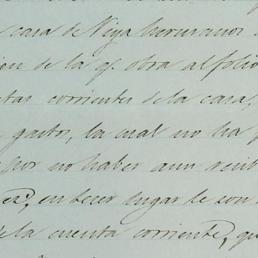 casa de Niya hermanos
de la qe. obra al folio
tas corrientes de la casa,
gastos, la cual no ha
por no haber aun
en tercer lugar le son
de la cuenta corriente, qu